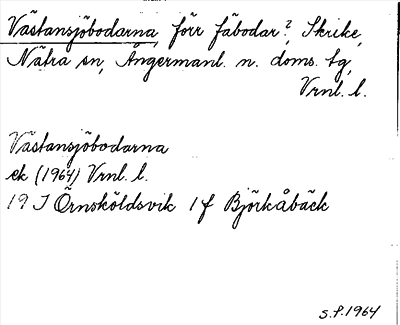 Västansjöbodarna, förr fäbodar?, Skrike,
Nätra sn, Ångermanl. n. doms. tg,
Vrnl. l.
Västansjöbodarna
ek (1964) Vrnl. l.
19 J Örnsköldsvik 1 f Björkåbäck
S.F. 1964